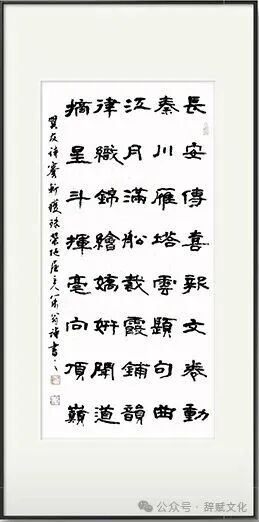 長安傳喜報文卷動
秦川雁塔雲題句曲
江月滿船載霞鋪韻
律織錦繪嬌妍聞道
摘星斗揮毫向頂巔
友詩賽新獲殊榮
公众号·辞赋文化